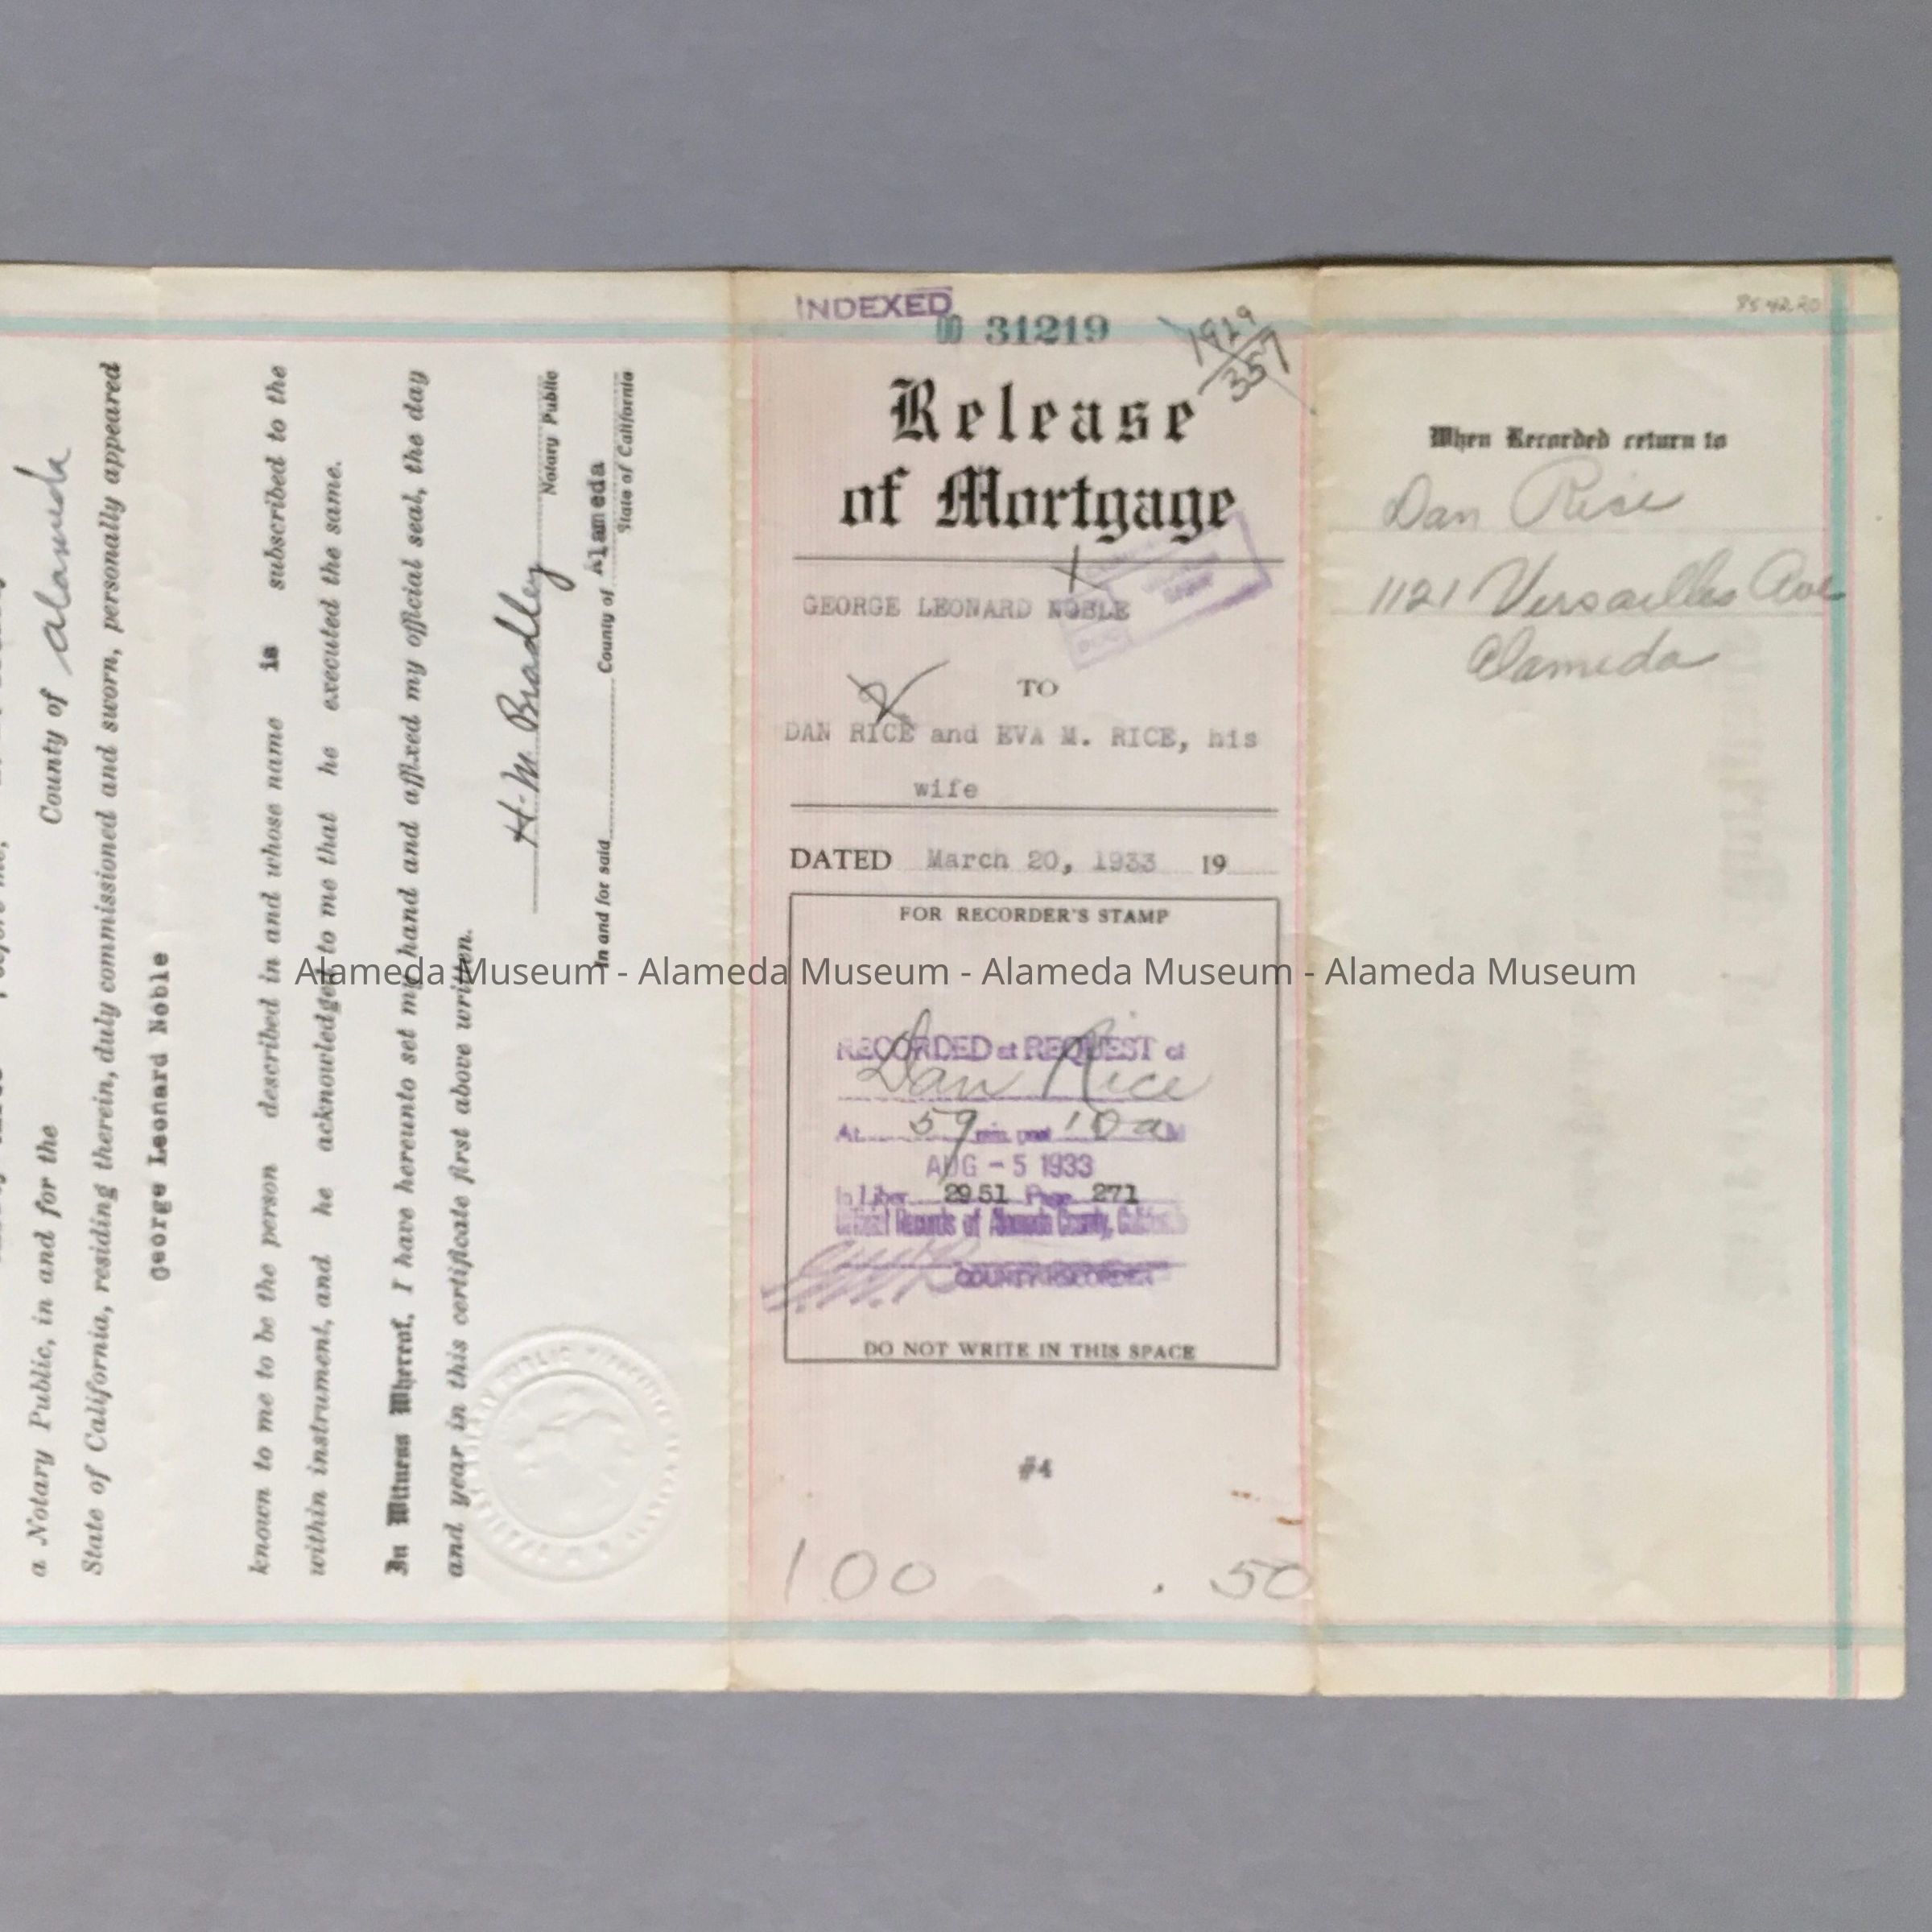 County of Alameda
a Notary Public, in and for the
State of California, residing therein, duly commissioned and sworn, personally appeared
George Leonard Noble
known to me to be the person described in and whose name is subscribed to the
within instrument, and he acknowledged to me that he executed the same.
In Witness Whereof, I have hereunto set my hand and affixed my official seal, the day
and year in this certificate first above written.
H. M. Bradley
Notary Public
In and for said County of Alameda
State of California
INDEXED
31219
1929
357
Release
of Mortgage
GEORGE LEONARD NOBLE
TO
DAN RICE and EVA M. RICE, his
wife
DATED March 20, 1933 19
FOR RECORDER'S STAMP
RECORDED at REQUEST of
Dan Rice
At 59 min. past 10 a M
AUG - 5 1933
In Liber 2951 Page 271
Official Records of Alameda County, California
COUNTY RECORDER
DO NOT WRITE IN THIS SPACE
#4
100 .50
When Recorded return to
Dan Rice
1121 Versailles Ave
Alameda
Alameda Museum - Alameda Museum - Alameda Museum - Alameda Museum